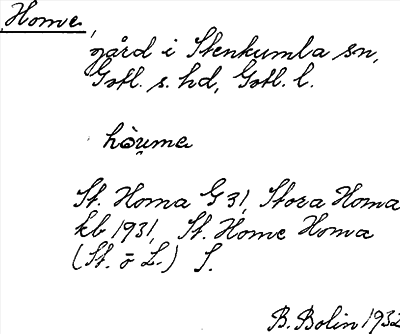 Home,
gård i Stenkumla sn,
Gotl. s. hd, Gotl. l.
hòu̯ma
St. Homa G 31, Stora Homa
kb 1931, St. Home Homa
(St. o L.) S.
B. Bolin 1932